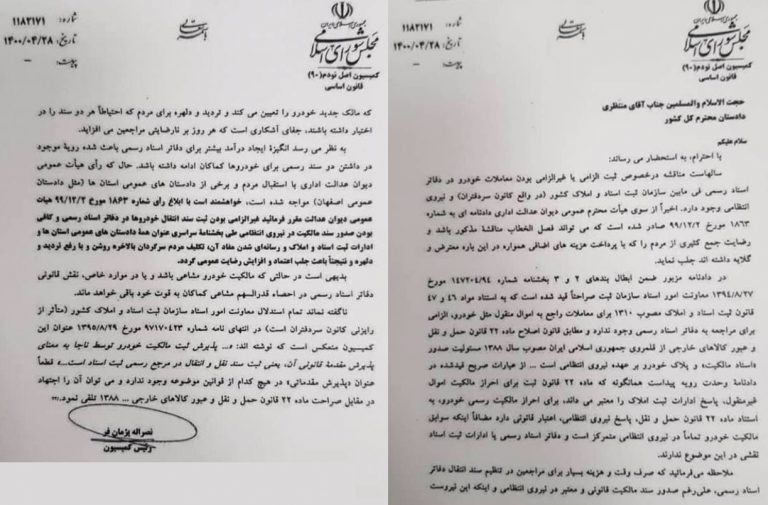 جمهوری اسلامی ایران
مجلس شورای اسلامی
کمیسیون اصل نودم (۹۰)
قانون اساسی
شماره: ۱۱۸۲۱۷۱
تاریخ: ۱۴۰۰/۰۴/۲۸
پیوست: –
حجت الاسلام والمسلمین جناب آقای منتظری
دادستان محترم کل کشور
سلام علیکم
با احترام، به استحضار می رساند:
سالهاست مناقشه درخصوص ثبت الزامی یا غیرالزامی بودن معاملات خودرو در دفاتر
اسناد رسمی فی مابین سازمان ثبت اسناد و املاک کشور (در واقع کانون سردفتران) و نیروی
انتظامی وجود دارد. اخیراً از سوی هیأت محترم عمومی دیوان عدالت اداری دادنامه ای به شماره
۱۸۶۳ مورخ ۹۹/۱۲/۲ صادر شده است که می تواند فصل الخطاب مناقشه مذکور باشد و
رضایت جمع کثیری از مردم را که با پرداخت هزینه های اضافی همواره در این باره معترض و
گلایه داشته اند جلب نماید.
در دادنامه مزبور ضمن ابطال بندهای ۲ و ۳ بخشنامه شماره ۱۴۷۲۰۴/۹۴ مورخ
۱۳۹۴/۸/۲۷ معاونت امور اسناد سازمان ثبت صراحتاً قید شده است که به استناد مواد ۴۶ و ۴۷
قانون ثبت اسناد و املاک مصوب ۱۳۱۰ برای معاملات راجع به اموال منقول مثل خودرو، الزامی
برای مراجعه به دفاتر اسناد رسمی وجود ندارد و مطابق قانون اصلاح ماده ۲۲ قانون حمل و نقل
و عبور کالاهای خارجی از قلمروی جمهوری اسلامی ایران مصوب سال ۱۳۸۸ مسئولیت صدور
«اسناد مالکیت» و پلاک خودرو بر عهده نیروی انتظامی است ... از عبارات صریح قیدشده در
دادنامهٔ وحدت رویه پیداست همانگونه که ماده ۲۲ قانون ثبت برای احراز مالکیت اموال
غیرمنقول، پاسخ ادارات ثبت املاک را معتبر می داند، برای احراز مالکیت رسمی خودرو، به
استناد ماده ۲۲ قانون حمل و نقل، پاسخ نیروی انتظامی، اعتبار قانونی دارد مضافاً اینکه سوابق
مالکیت خودرو تماماً در نیروی انتظامی متمرکز است و دفاتر اسناد رسمی یا ادارات ثبت اسناد
نقشی در این موضوع ندارند.
ملاحظه می‌فرمائید که صرف وقت و هزینه بسیار برای مراجعین در تنظیم سند انتقال دفاتر
اسناد رسمی، علی‌رغم صدور سند مالکیت قانونی و معتبر در نیروی انتظامی و اینکه این نیروست
جمهوری اسلامی ایران
مجلس شورای اسلامی
کمیسیون اصل نودم (۹۰)
قانون اساسی
شماره: ۱۱۸۲۱۷۱
تاریخ: ۱۴۰۰/۰۴/۲۸
پیوست: –
که مالک جدید خودرو را تعیین می کند و تردید و دلهره برای مردم که احتیاطاً هر دو سند را در
اختیار داشته باشند، جفای آشکاری است که هر روز بر نارضایتی مراجعین می افزاید.
به نظر می رسد انگیزهٔ ایجاد درآمد بیشتر برای دفاتر اسناد رسمی باعث شده رویهٔ موجود
در داشتن دو سند رسمی برای خودروها کماکان ادامه داشته باشد. حال که رأی هیأت عمومی
دیوان عدالت اداری با استقبال مردم و برخی از دادستان های عمومی استان ها (مثل دادستان
عمومی اصفهان) مواجه شده است، خواهشمند است با ابلاغ رأی شماره ۱۸۶۳ مورخ ۹۹/۱۲/۲ هیات
عمومی دیوان عدالت مقرر فرمائید غیرالزامی بودن ثبت سند انتقال خودروها در دفاتر اسناد رسمی و کافی
بودن صدور سند مالکیت در نیروی انتظامی طی بخشنامهٔ سراسری عنوان همهٔ دادستان های عمومی استان ها و
ادارات ثبت اسناد و املاک و رسانه‌ای شدن مفاد آن، تکلیف مردم سرگردان بالاخره روشن و با رفع تردید و
دلهره و نتیجتاً باعث جلب اعتماد و افزایش رضایت عمومی گردد.
بدیهی است در حالتی که مالکیت خودرو مشاعی باشد و یا در موارد خاص، نقش قانونی
دفاتر اسناد رسمی در احصاء قدرالسهم مشاعی کماکان به قوت خود باقی خواهد ماند.
ناگفته نماند تمام استدلال معاونت امور اسناد سازمان ثبت اسناد و املاک کشور (متأثر از
رایزنی کانون سردفتران است) در انتهای نامه شماره ۹۷۱۷۰۴۲۳ مورخ ۱۳۹۵/۸/۲۹ عنوان این
کمیسیون منعکس است که نوشته اند: «... پذیرش ثبت مالکیت خودرو توسط ناجا به معنای
پذیرش مقدمهٔ قانونی آن، یعنی ثبت سند نقل و انتقال در مرجع رسمی ثبت اسناد است...» قطعاً
عنوان «پذیرش مقدماتی» در هیچ کدام از قوانین موضوعه وجود ندارد و می توان آن را اجتهاد
در مقابل صراحت ماده ۲۲ قانون حمل و نقل و عبور کالاهای خارجی ... ۱۳۸۸ تلقی نمود...
نصراله پژمان فر
رئیس کمیسیون